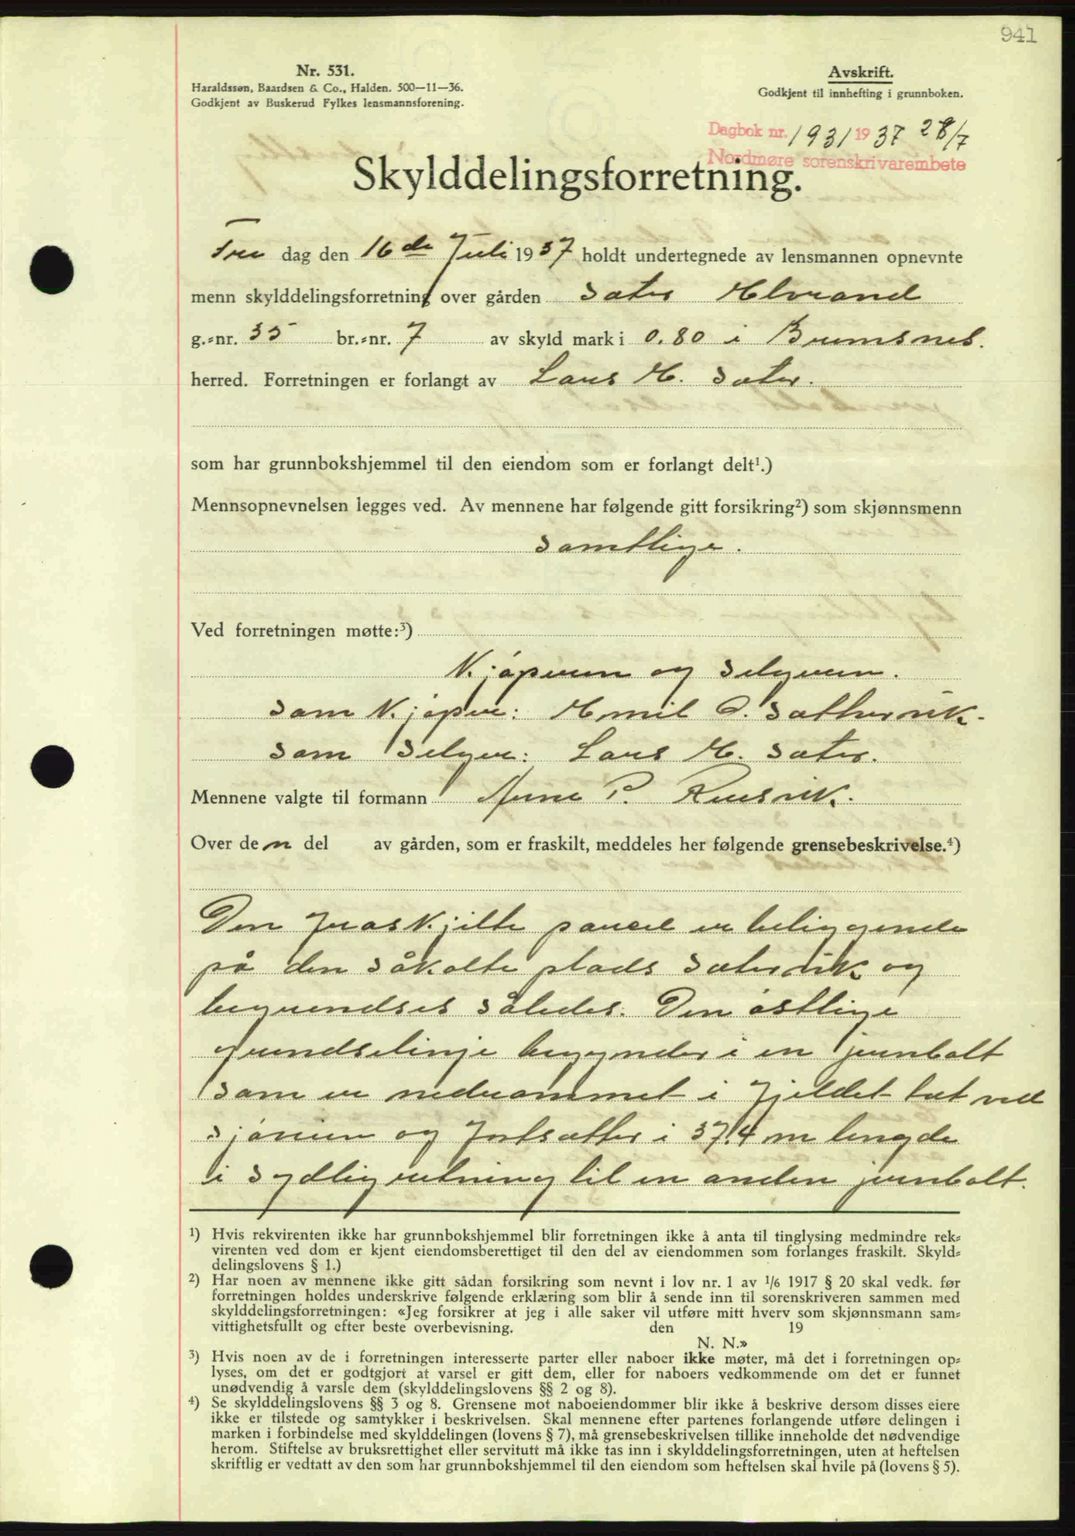 941
Nr. 531.
Haraldssøn, Baardsen & Co., Halden. 500—11—36.
Godkjent av Buskerud Fylkes lensmannsforening.
Avskrift.
Godkjent til innhefting i grunnboken.
Dagbok nr. 1931 1937 28/7
Nordmøre sorenskrivarembete
Skylddelingsforretning.
Fre dag den 16de Juli 1937 holdt undertegnede av lensmannen opnevnte
menn skylddelingsforretning over gården Sæter
g.=nr. 35 br.=nr. 7 av skyld mark i 0.80 i Bremsnes.
herred. Forretningen er forlangt av Lars M. Sæter.
som har grunnbokshjemmel til den eiendom som er forlangt delt¹.)
Mennsopnevnelsen legges ved. Av mennene har følgende gitt forsikring²) som skjønnsmenn
Samtlige.
Ved forretningen møtte:³)
Kjøperen og Selgeren.
Som Kjøper: Emil O. Sæthervik.
Som Selger: Lars M. Sæter.
Mennene valgte til formann Arne P. Rensvik.
Over den del av gården, som er fraskilt, meddeles her følgende grensebeskrivelse.⁴)
Den fraskjilte parcel er beliggende
på den såkalte plads Sætervik og
begrendses således. Den østlige
grendselinje begynder i en jernbolt
som er nedrammet i fjeldet tæt ved
sjøen og fortsætter i 37.4 m lengde
i sydlig retning til en anden jernbolt.
¹) Hvis rekvirenten ikke har grunnbokshjemmel blir forretningen ikke å anta til tinglysing medmindre rek=
virenten ved dom er kjent eiendomsberettiget til den del av eiendommen som forlanges fraskilt. Skyld=
delingslovens § 1.)
²) Har noen av mennene ikke gitt sådan forsikring som nevnt i lov nr. 1 av 1/6 1917 § 20 skal vedk. før
forretningen holdes underskrive følgende erklæring som blir å sende inn til sorenskriveren sammen med
skylddelingsforretningen: «Jeg forsikrer at jeg i alle saker vil utføre mitt hverv som skjønnsmann sam=
vittighetsfullt og efter beste overbevisning. den 19
N. N.»
³) Hvis noen av de i forretningen interesserte parter eller naboer ikke møter, må det i forretningen op=
lyses, om det er godtgjort at varsel er gitt dem, eller for naboers vedkommende om det er funnet
unødvendig å varsle dem (skylddelingslovens §§ 2 og 8).
⁴) Se skylddelingslovens §§ 3 og 8. Grensene mot naboeiendommer blir ikke å beskrive dersom disses eiere
ikke er tilstede og samtykker i beskrivelsen. Skal mennene efter partenes forlangende utføre delingen i
marken i forbindelse med skylddelingen (lovens § 7), må grensebeskrivelsen tillike inneholde det nødvendige
herom. Stiftelse av bruksrettighet eller servitutt må ikke tas inn i skylddelingsforretningen, uten at heftelsen
skriftlig er vedtatt av den som har grunnbokshjemmel til den eiendom som heftelsen skal hvile på (lovens § 5).